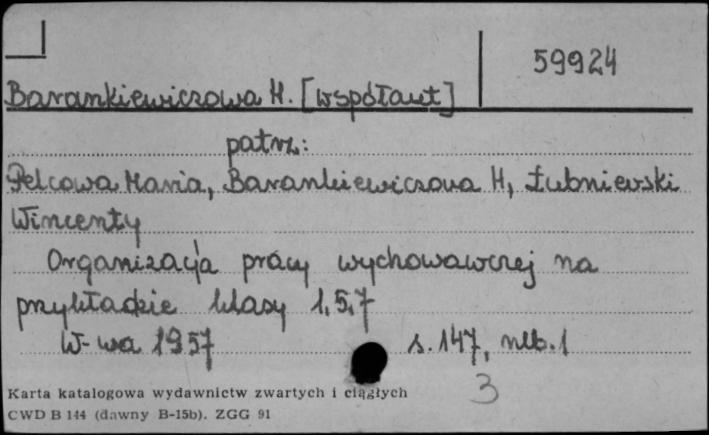 59924
Barankiewiczowa H. [współaut]
patrz:
Pelcowa Maria, Barankiewiczowa H, Łubniewski
Wincenty
Organizacja pracy wychowawczej na
przykładzie klasy 1, 5, 7
W-wa 1957 s. 147, nlb. 1
3
Karta katalogowa wydawnictw zwartych i ciągłych
CWD B 144 (dawny B-15b). ZGG 91